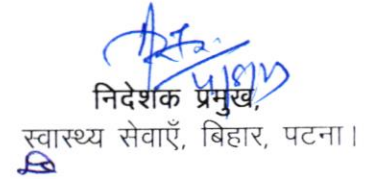 निदेशक प्रमुख,
स्वास्थ्य सेवाएँ, बिहार, पटना।